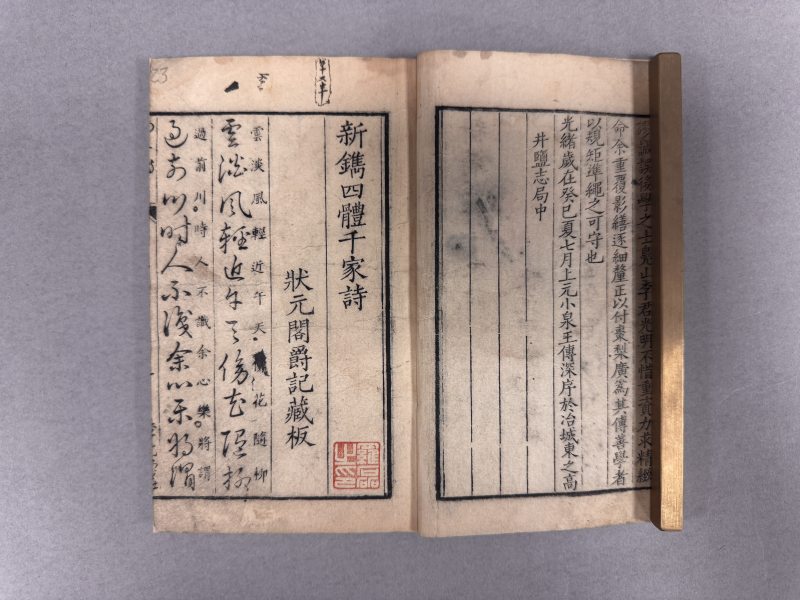 後學之士鳧山李君光明不惜重資力求精緻
命余重覆影繕逐細釐正以付棗梨廣為其傳善學者
以規矩準繩之可守也
光緒歲在癸巳夏七月上元小泉王傳深序於冶城東之高
井鹽志局中
新鐫四體千家詩
狀元閣爵記藏板
羅磊之印
雲淡風輕近午天花隨柳
雲淡風輕近午天傍花隨柳
過前川時人不識余心樂將謂
過前川時人不識余心樂將謂
23